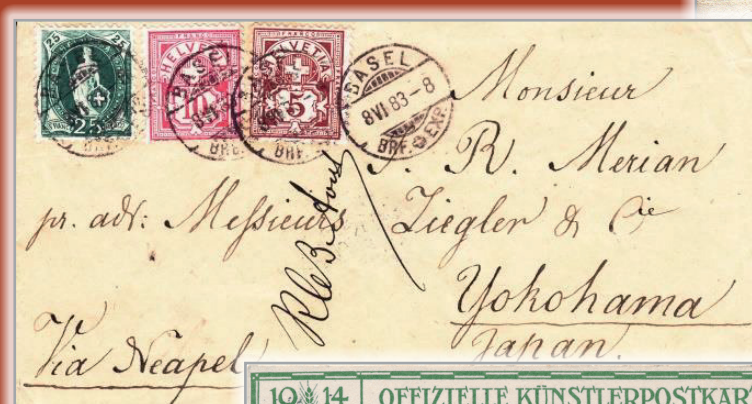 25 25
FRANCO FRANCO
HELVETIA HELVETIA
25 10 5
BASEL
8 VI 83 - 8
BRF. EXP.
Monsieur
R. Merian
pr. adr: Messieurs Ziegler & Cie
Yokohama
Japan.
Via Neapel
1914 OFFIZIELLE KÜNSTLERPOSTKART